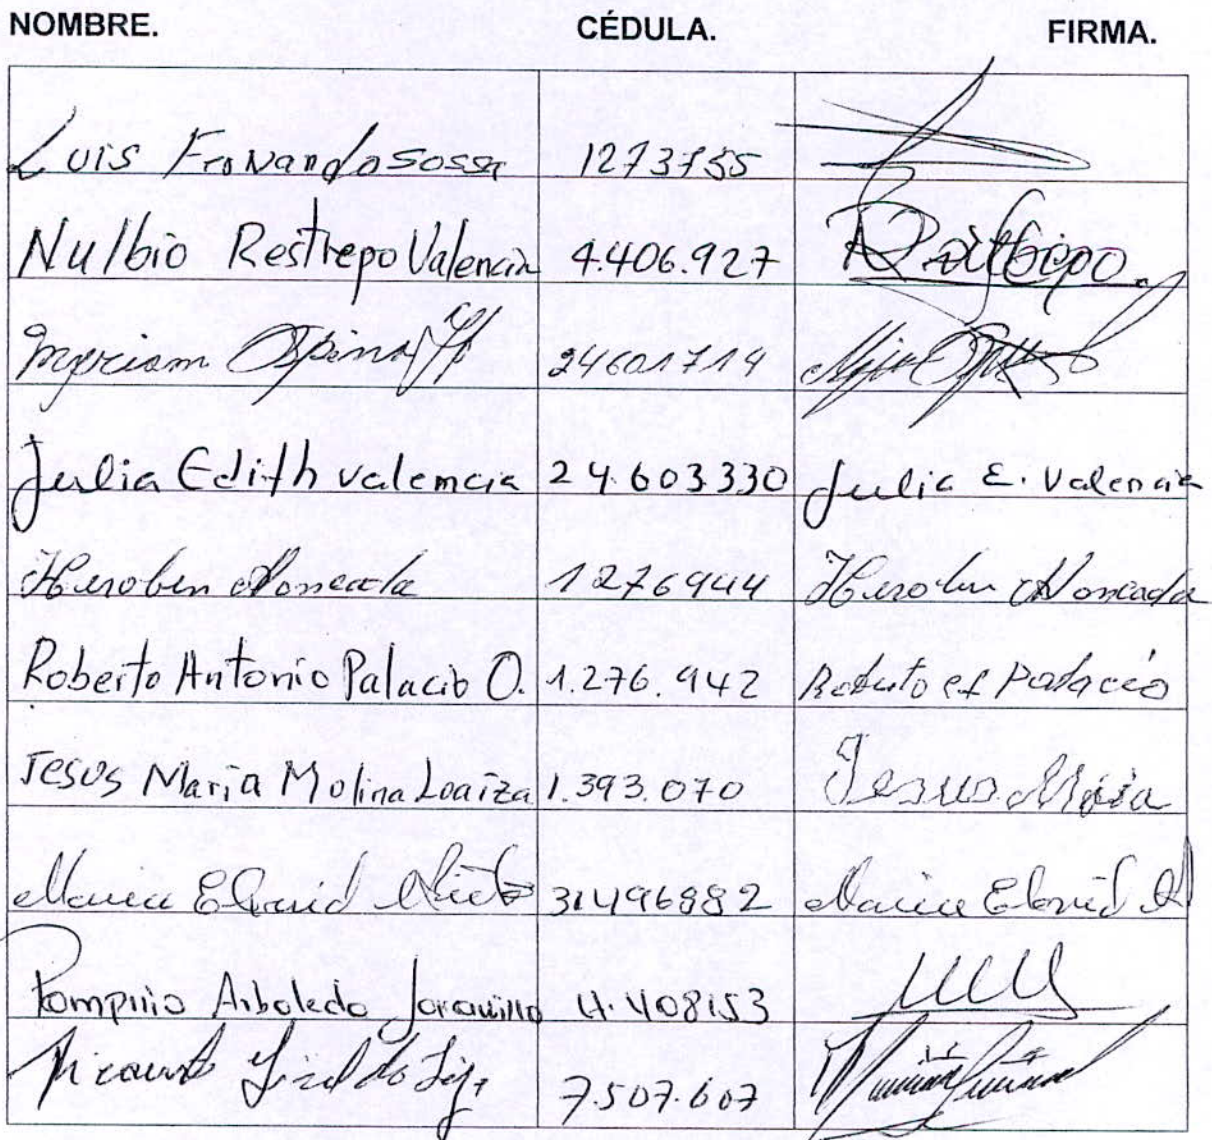 NOMBRE. CÉDULA. FIRMA.
Luis Fernando Sossa 1273755
Nulbio Restrepo Valencia 4.406.927 Restrepo.
Myriam Ospina 24601714
Julia Edith valencia 24.603330 Julia E. Valencia
Heroben Moncada 1276944 Heroben Moncada
Roberto Antonio Palacio O. 1.276.942 Roberto Palacio
Jesus Maria Molina Loaiza 1.393.070 Jesus Maria
Maria Elcrid Nieto 31496882 Maria Elcrid N
Pompilio Arboledo Jaramillo 4.408153
7.507.607